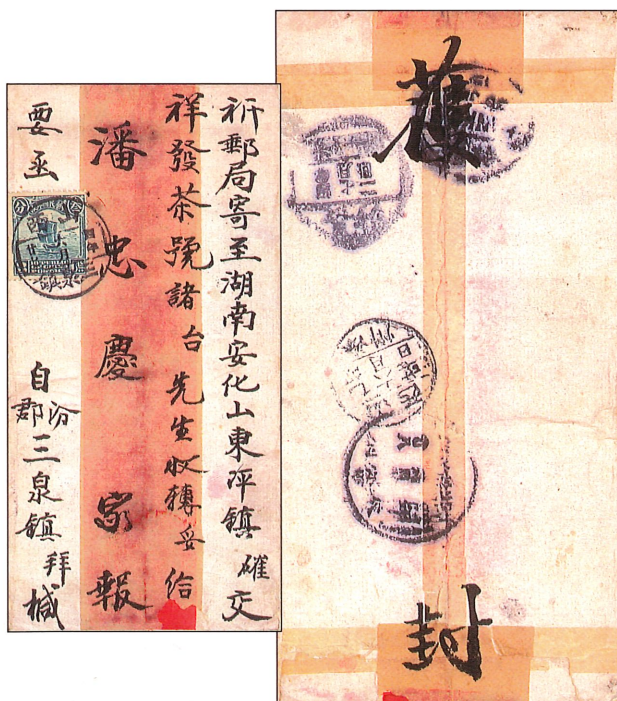 祈郵局寄至湖南安化山東坪鎮確交
祥發茶號諸台先生收轉妥給
潘忠慶家報
要函
自汾郡三泉鎮拜椷
護封